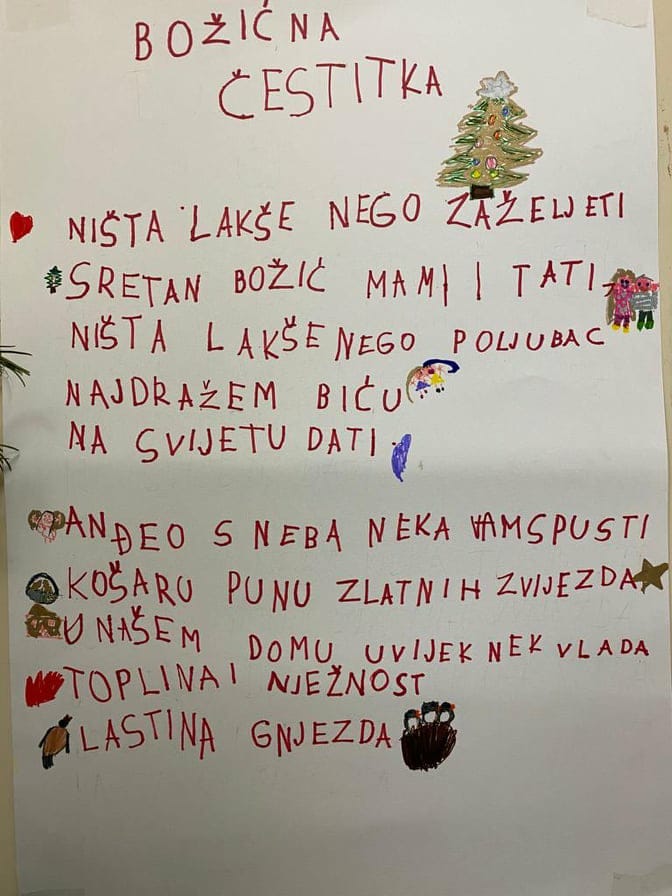 BOŽIĆNA
ČESTITKA
NIŠTA LAKŠE NEGO ZAŽELJETI
SRETAN BOŽIĆ MAMI I TATI,
NIŠTA LAKŠE NEGO POLJUBAC
NAJDRAŽEM BIĆU
NA SVIJETU DATI.
ANĐEO S NEBA NEKA VAM SPUSTI
KOŠARU PUNU ZLATNIH ZVIJEZDA
U NAŠEM DOMU UVIJEK NEK VLADA
TOPLINA I NJEŽNOST
LASTINA GNJEZDA